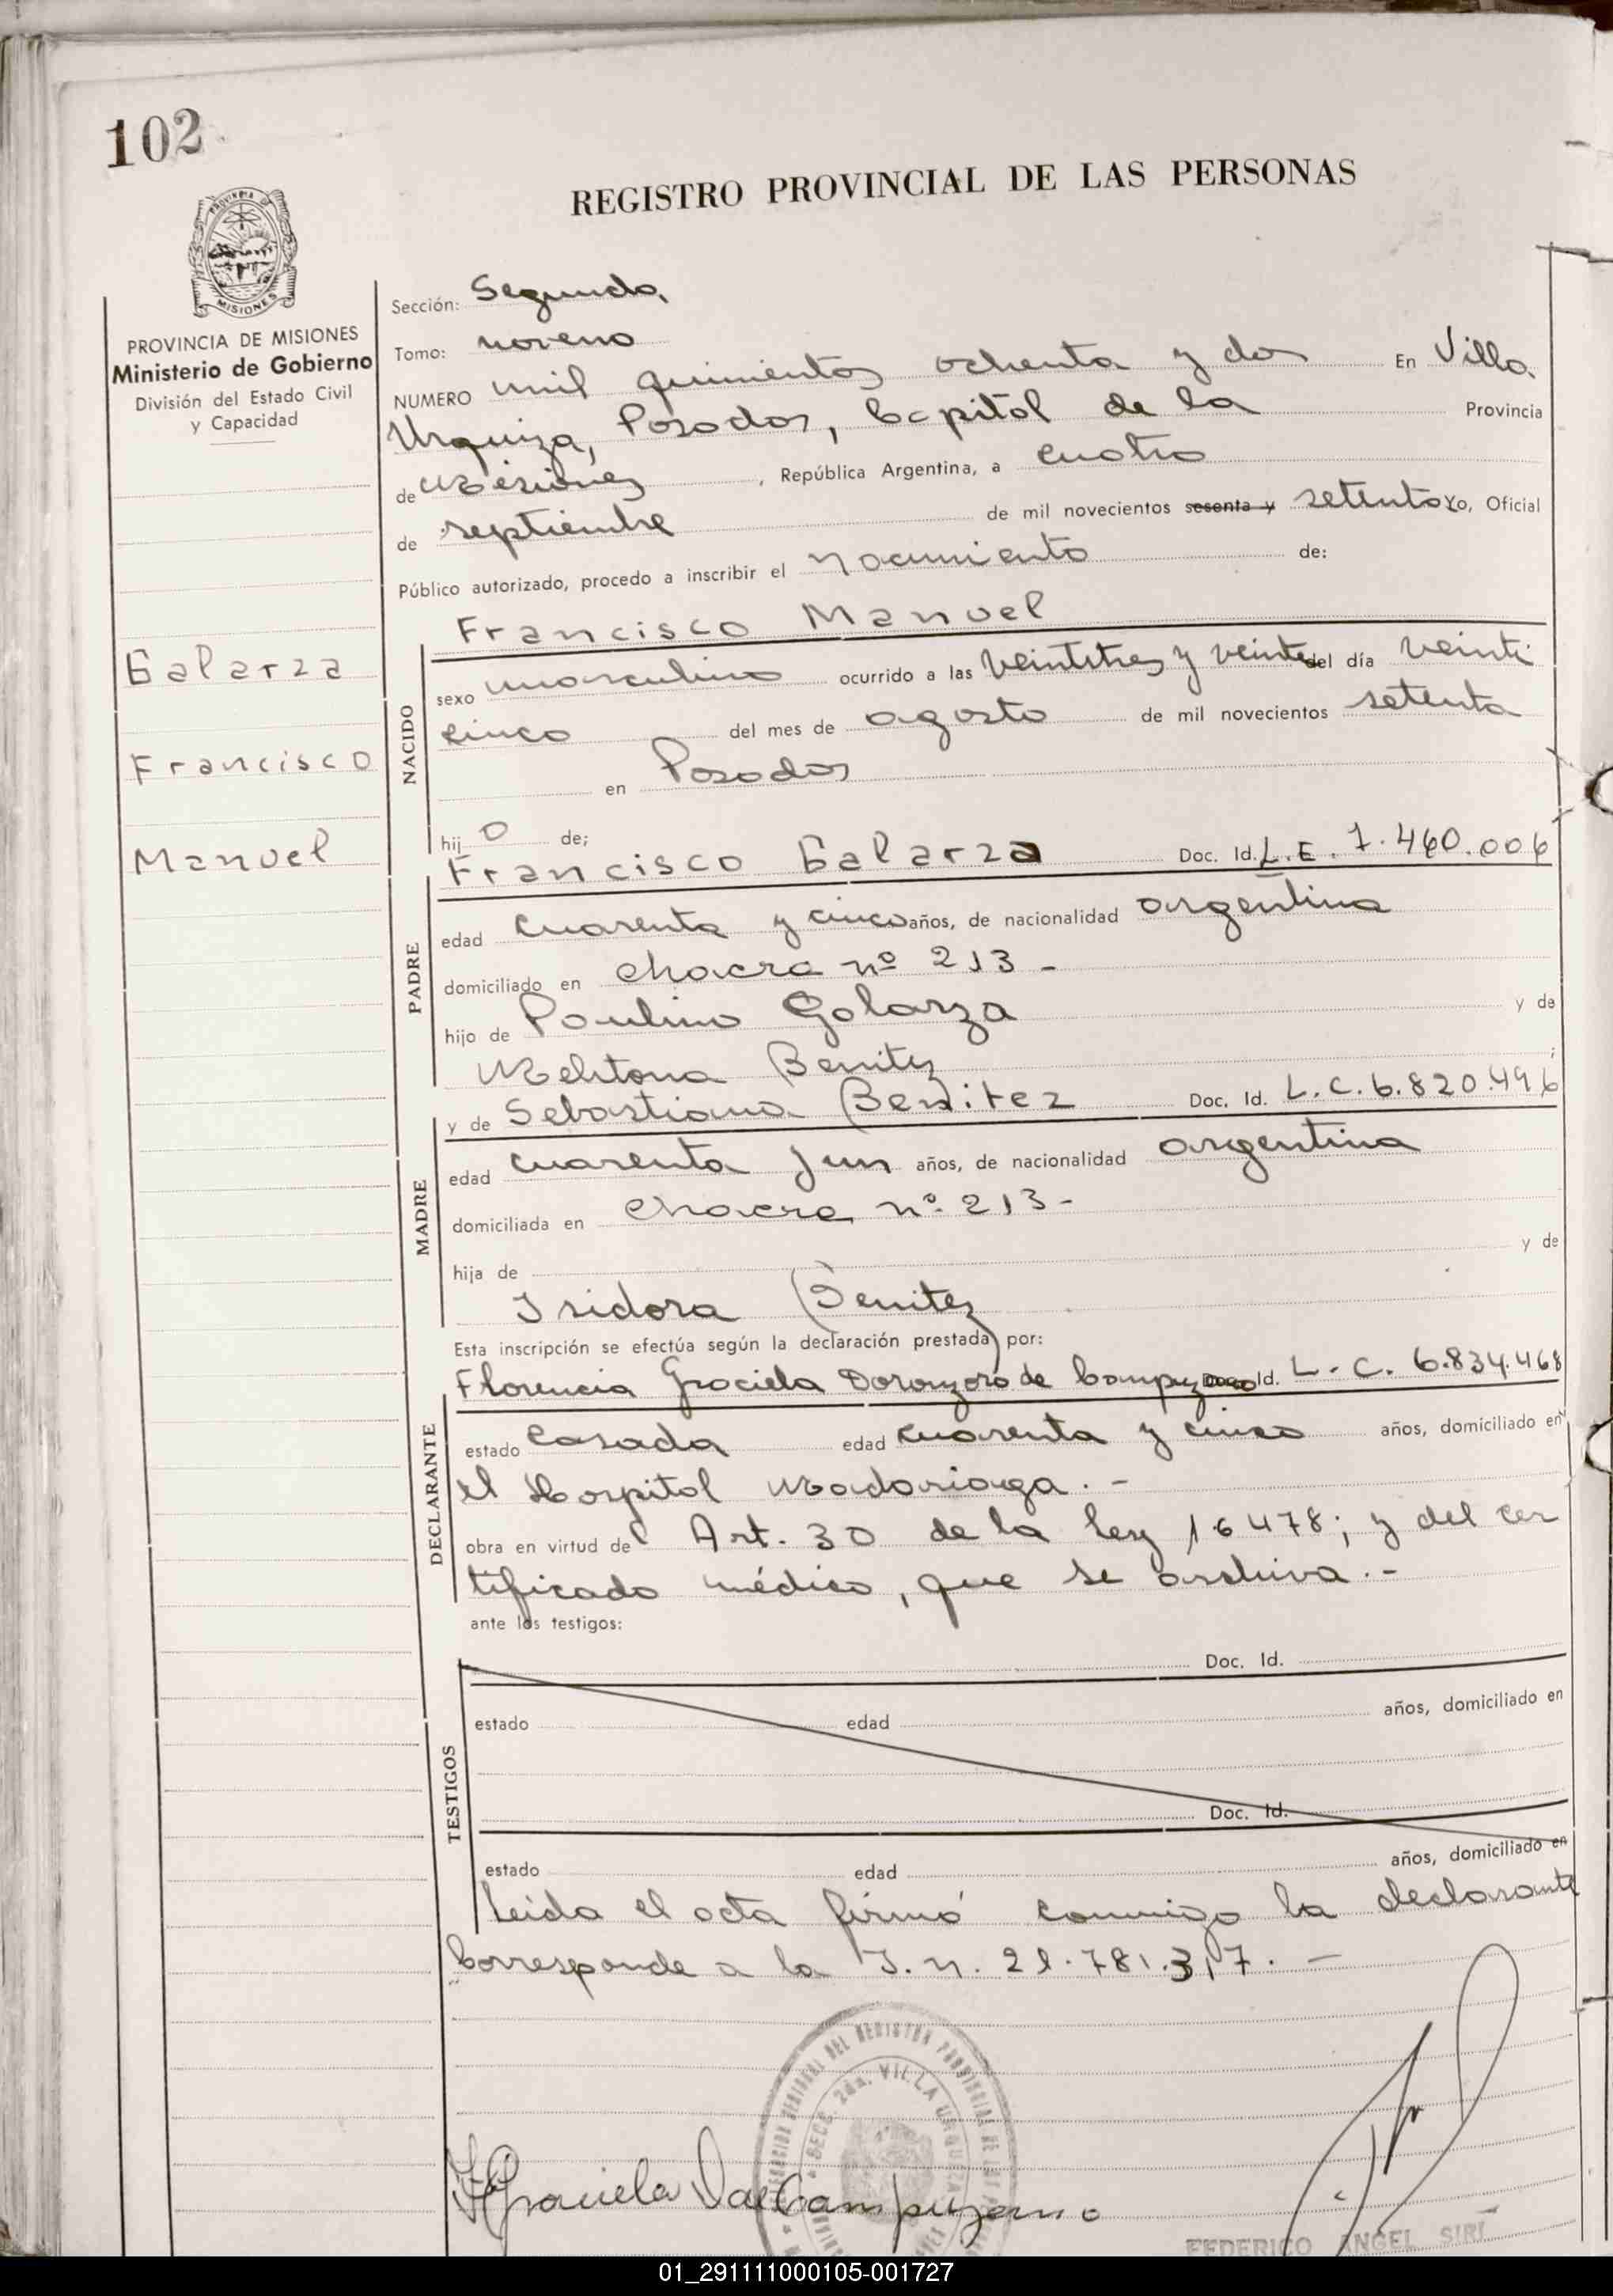 102
REGISTRO PROVINCIAL DE LAS PERSONAS
PROVINCIA DE MISIONES
Ministerio de Gobierno
División del Estado Civil
y Capacidad
Galarza
Francisco
Manuel
Sección: Segunda
Tomo: noveno
NUMERO mil quinientos ochenta y dos En Villa
Urquiza, Posadas, Capital de la Provincia
de Misiones, República Argentina, a cuatro
de septiembre de mil novecientos sesenta y setenta Yo, Oficial
Público autorizado, procedo a inscribir el nacimiento de:
Francisco Manuel
NACIDO
sexo masculino ocurrido a las veintitres y veinte del día veinti
cinco del mes de agosto de mil novecientos setenta
en Posadas
hij o de;
Francisco Galarza Doc. Id. L.E. 7.460.006
PADRE
edad cuarenta y cinco años, de nacionalidad argentina
domiciliado en chacra nº 213 -
hijo de Paulino Galarza y de
Melitona Benitez ;
y de Sebastiana Benitez Doc. Id. L.C. 6.820.496
MADRE
edad cuarenta y un años, de nacionalidad argentina
domiciliada en chacra nº 213 -
hija de y de
Isidora Benitez
Esta inscripción se efectúa según la declaración prestada por:
Florencia Graciela de Campuzano Doc. Id. L.C. 6.834.468
DECLARANTE
estado casada edad cuarenta y cinco años, domiciliado en
el Hospital Madariaga. -
obra en virtud del Art. 30 de la ley 16478; y del cer
tificado médico, que se archiva. -
ante los testigos:
TESTIGOS
Doc. Id.
estado edad años, domiciliado en
Doc. Id.
estado edad años, domiciliado en
Leida el acta firmó conmigo la declarante
Corresponde a la I.n. 21.781.317. -
SECC. 2da. VILLA URQUIZA
FGraciela Campuzano
FEDERICO ANGEL SIRI
01_291111000105-001727